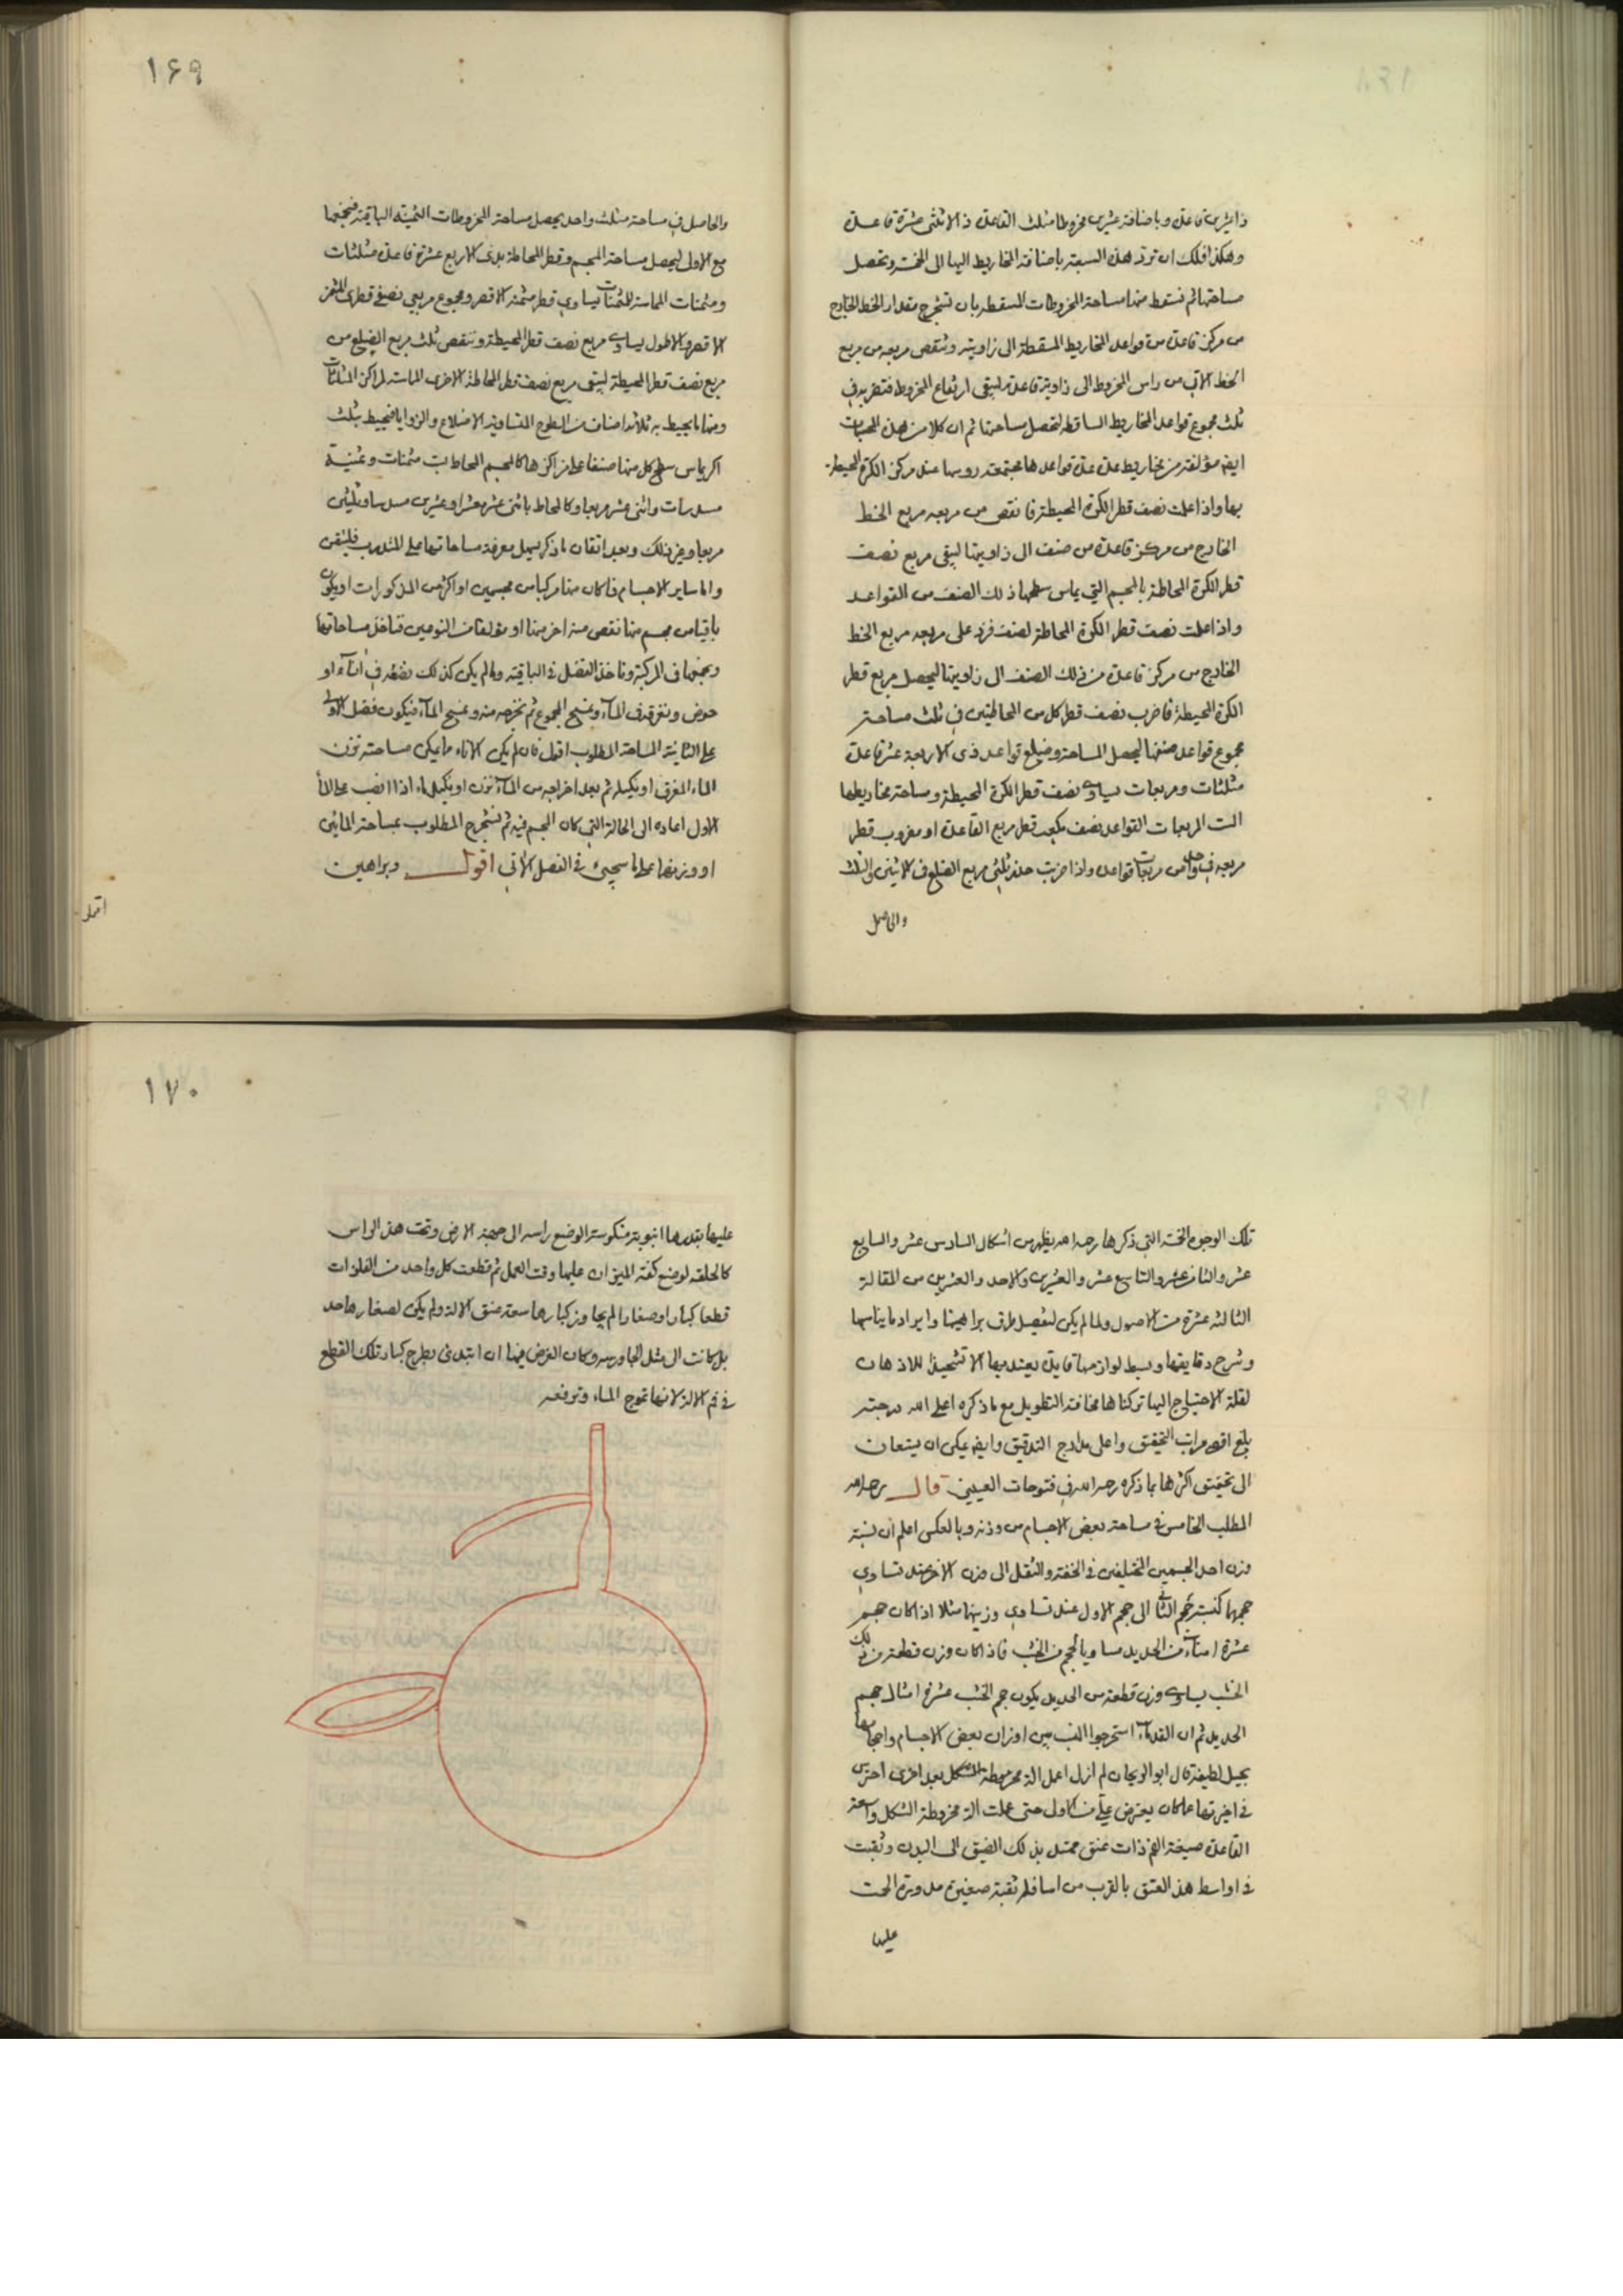 ذا عشرين قاعدة وباضافة عشرين مخروطا مثلث القاعدة ذا الاثنتى عشرة قاعدة
وهكذا فلك ان ترد هذه السبعة باضافة المخاريط اليها الى الخمسة وتحصل
مساحتها ثم تسقط منها مساحة المخروطات المسقطة بان تستخرج مقدار الخط الخارج
من مركز قاعدة من قواعد المخاريط المسقطة الى زاويته وتنقص مربعه من مربع
الخط الاتى من راس المخروط الى زاوية قاعدته ليبقى ارتفاع المخروط فتضربه فى
ثلث مجموع قواعد المخاريط الساقطة لتحصل مساحتها ثم ان كلا من هذه المجسمات
ايضا مؤلفة من مخاريط عدة عدة قواعدها مجتمعة روسها عند مركز الكرة المحيطة
بها واذا علمت نصف قطر الكرة المحيطة فانقص من مربعه مربع الخط
الخارج من مركز قاعدة من صنف الى زاويتها ليبقى مربع نصف
قطر الكرة المحاطة بالمجسم التى يماس سطحها ذلك الصنف من القواعد
واذا علمت نصف قطر الكرة المحاطة لصنف فزد على مربعه مربع الخط
الخارج من مركز قاعدة من ذلك الصنف الى زاويتها ليحصل مربع قطر
الكرة المحيطة فاضرب نصف قطر كل من المحاطتين فى ثلث مساحة
مجموع قواعد صنفها ليحصل المساحة وضلع قواعد ذى الاربعة عشرة قاعدة
مثلثات ومربعات يساوى نصف قطر الكرة المحيطة ومساحة مخاريطها
الست المربعات القواعد نصف مكعب قطر مربع القاعدة او مضروب قطر
مربعه فى واحد من مربعات قواعده واذا ضربت جذر ثلثى مربع الضلع فى الاثنين والثلث
والحاصل
١٦٩
والحاصل فى مساحة مثلث واحد يحصل مساحة المخروطات الثمنية الباقية فنجمعها
مع الاول ليحصل مساحة المجسم وقطر المحاطة بذى الاربع عشرة قاعدة مثلثات
ومثمنات المماسة للمثمنات يساوى قطر مثمنه الاقصر ومجموع مربعى نصفى قطرى المثمن
الاقصر والاطول يساوى مربع نصف قطر المحيطة وننقص ثلث مربع الضلع من
مربع نصف قطر المحيطة ليبقى مربع نصف قطر المحاطة الاخرى المماسة لمراكز المثلثات
ومنها ما يحيط به ثلاثة اصناف من السطوح المتساوية الاضلاع والزوايا فيحيط بثلث
اكر يماس سطح كل منها صنفا على مراكزها كالمجسم المحاط بست مثمنات وثمنية
مسدسات واثنى عشر مربعا وكالمحاط باثنى عشر معشرا وعشرين مسدسا وثلثين
مربعا وغير ذلك وبعد اتقان ما ذكر يسهل معرفة مساحاتها على المتدرب فليتقن
واما ساير الاجسام فما كان منها مركبا من مجسمين او اكثر من المذكورات او يكون
باقيا من مجسم منها نقص منه اخر منها او مؤلفا من النوعين فتاخذ مساحاتها
وتجمعها فى المركبة وتاخذ الفضل فى الباقية وما لم يكن كذلك نضعه فى اناء او
حوض ونغرقه فى الماء ونمسح المجموع ثم نخرجه منه ونمسح الماء فيكون فضل الاولى
على الثانية المساحة المطلوب اقول فان لم يكن الاناء ما يمكن مساحته نزن
الماء المغرق او نكيله ثم بعد اخراجه من الماء نزن او نكيل ماء اذا انصب على الماء
الاول اعاده الى الحالة التى كان المجسم فيه ثم نستخرج المطلوب بمساحة المائين
او وزنهما على ما سيجئ فى الفصل الاتى اقول وبراهين
تلك الوجوه الخمسة التى ذكرها رحمه الله يظهر من اشكال السادس عشر والسابع
عشر والثامن عشر والتاسع عشر والعشرين والاحد والعشرين من المقالة
الثالثة عشرة من الاصول ولما لم يكن لتفصيل طرق براهينها وايراد ما يناسبها
وشرح دقايقها وبسط لوازمها فايدة يعتد بها الا تشحيذا للاذهان
لقلة الاحتياج اليها تركناها مخافة التطويل مع ما ذكره اعلى الله درجته
بلغ اقصى مراتب التحقيق واعلى مدارج التدقيق وايضا يمكن ان يستعان
الى تحقيق اكثرها بما ذكره رحمه الله فى فتوحات العينين قال رحمه الله
المطلب الخامس فى مساحة بعض الاجسام من وزنه وبالعكس اعلم ان نسبة
وزن احد الجسمين المختلفين فى الخفة والثقل الى وزن الاخر عند تساوى
حجمها كنسبة حجم الثانى الى حجم الاول عند تساوى وزنيهما مثلا اذا كان حجم
عشرة امناء من الحديد مساويا لحجم من الخشب فاذا كان وزن قطعة من ذلك
الخشب يساوى وزن قطعة من الحديد يكون حجم الخشب عشرة امثال حجم
الحديد ثم ان القدماء استخرجوا النسب بين اوزان بعض الاجسام واحجامها
بحيل لطيفة قال ابو الريحان لم ازل اعمل الة مخروطة الشكل بعد اخرى احترس
فى اخيرتها عما كان يعترض على فى الاول حتى عملت الة مخروطة الشكل واسعة
القاعدة ضيقة الفم ذات عنق ممتد بذلك الضيق الى البدن وثقبت
فى اواسط هذه العنق بالقرب من اسافله ثقبة صغيرة مدورة الحمت
عليها
١٧٠
عليها بقدرها انبوبة منكوسة الوضع راسه الى جهة الارض وتحت هذا الراس
كالحلقة لوضع كفة الميزان عليها وقت العمل ثم قطعت كل واحد من الفلزات
قطعا كبارا وصغارا لم يجاوز كبارها سعة عنق الالة ولم يكن لصغارها حد
بل كانت الى مثل الجاورسة وكان الغرض فيها ان ابتدئ بطرح كبار تلك القطع
فى فم الالة لانها تموج الماء وترفعه